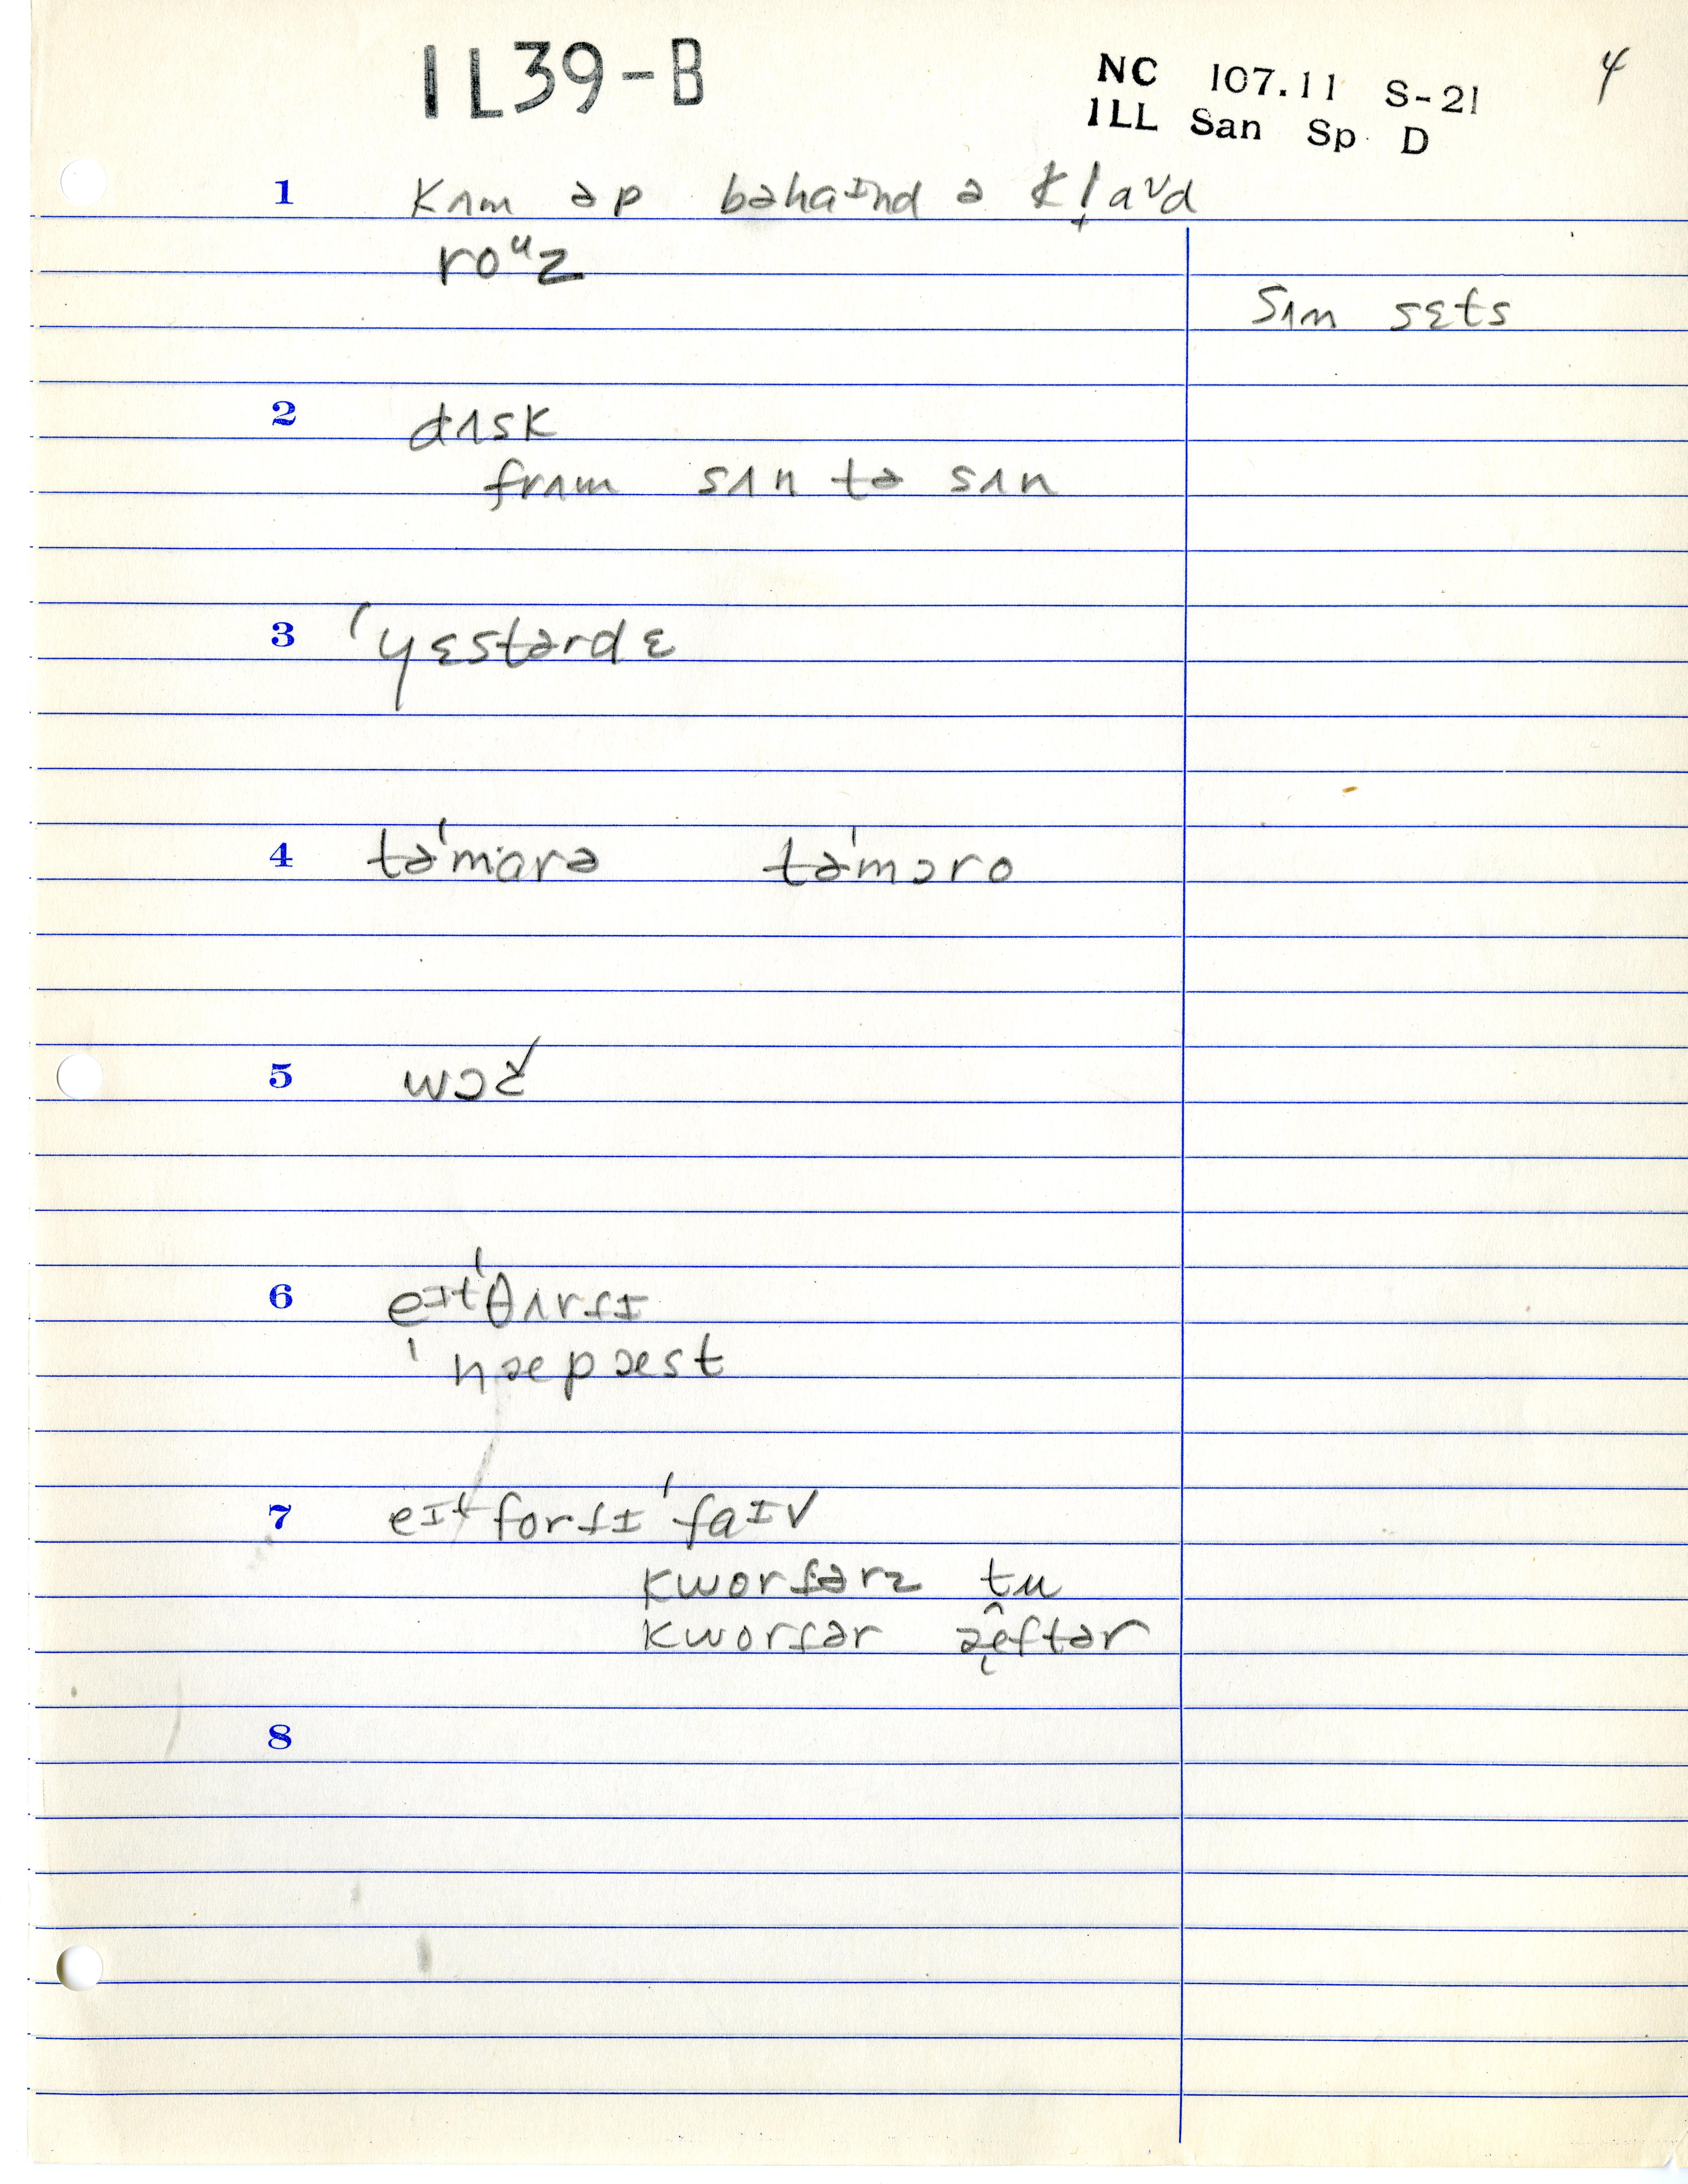 IL39-B
NC 107.11 S-21
ILL San Sp D
4
1 kʌm əp bəhaᶦnd ə kl̩aᶷd
roᵘz
sʌn sɛts
2 dʌsk
frʌm sʌn tə sʌn
3 ˈyɛstərdɛ
4 təˈmɑrə təˈmɔro
5
6 eᶦtˈθʌrɾɪ
ˈhæpæst
7 eɪt forɾɪˈfaɪv
kworɾərz tu
kworɾər
8